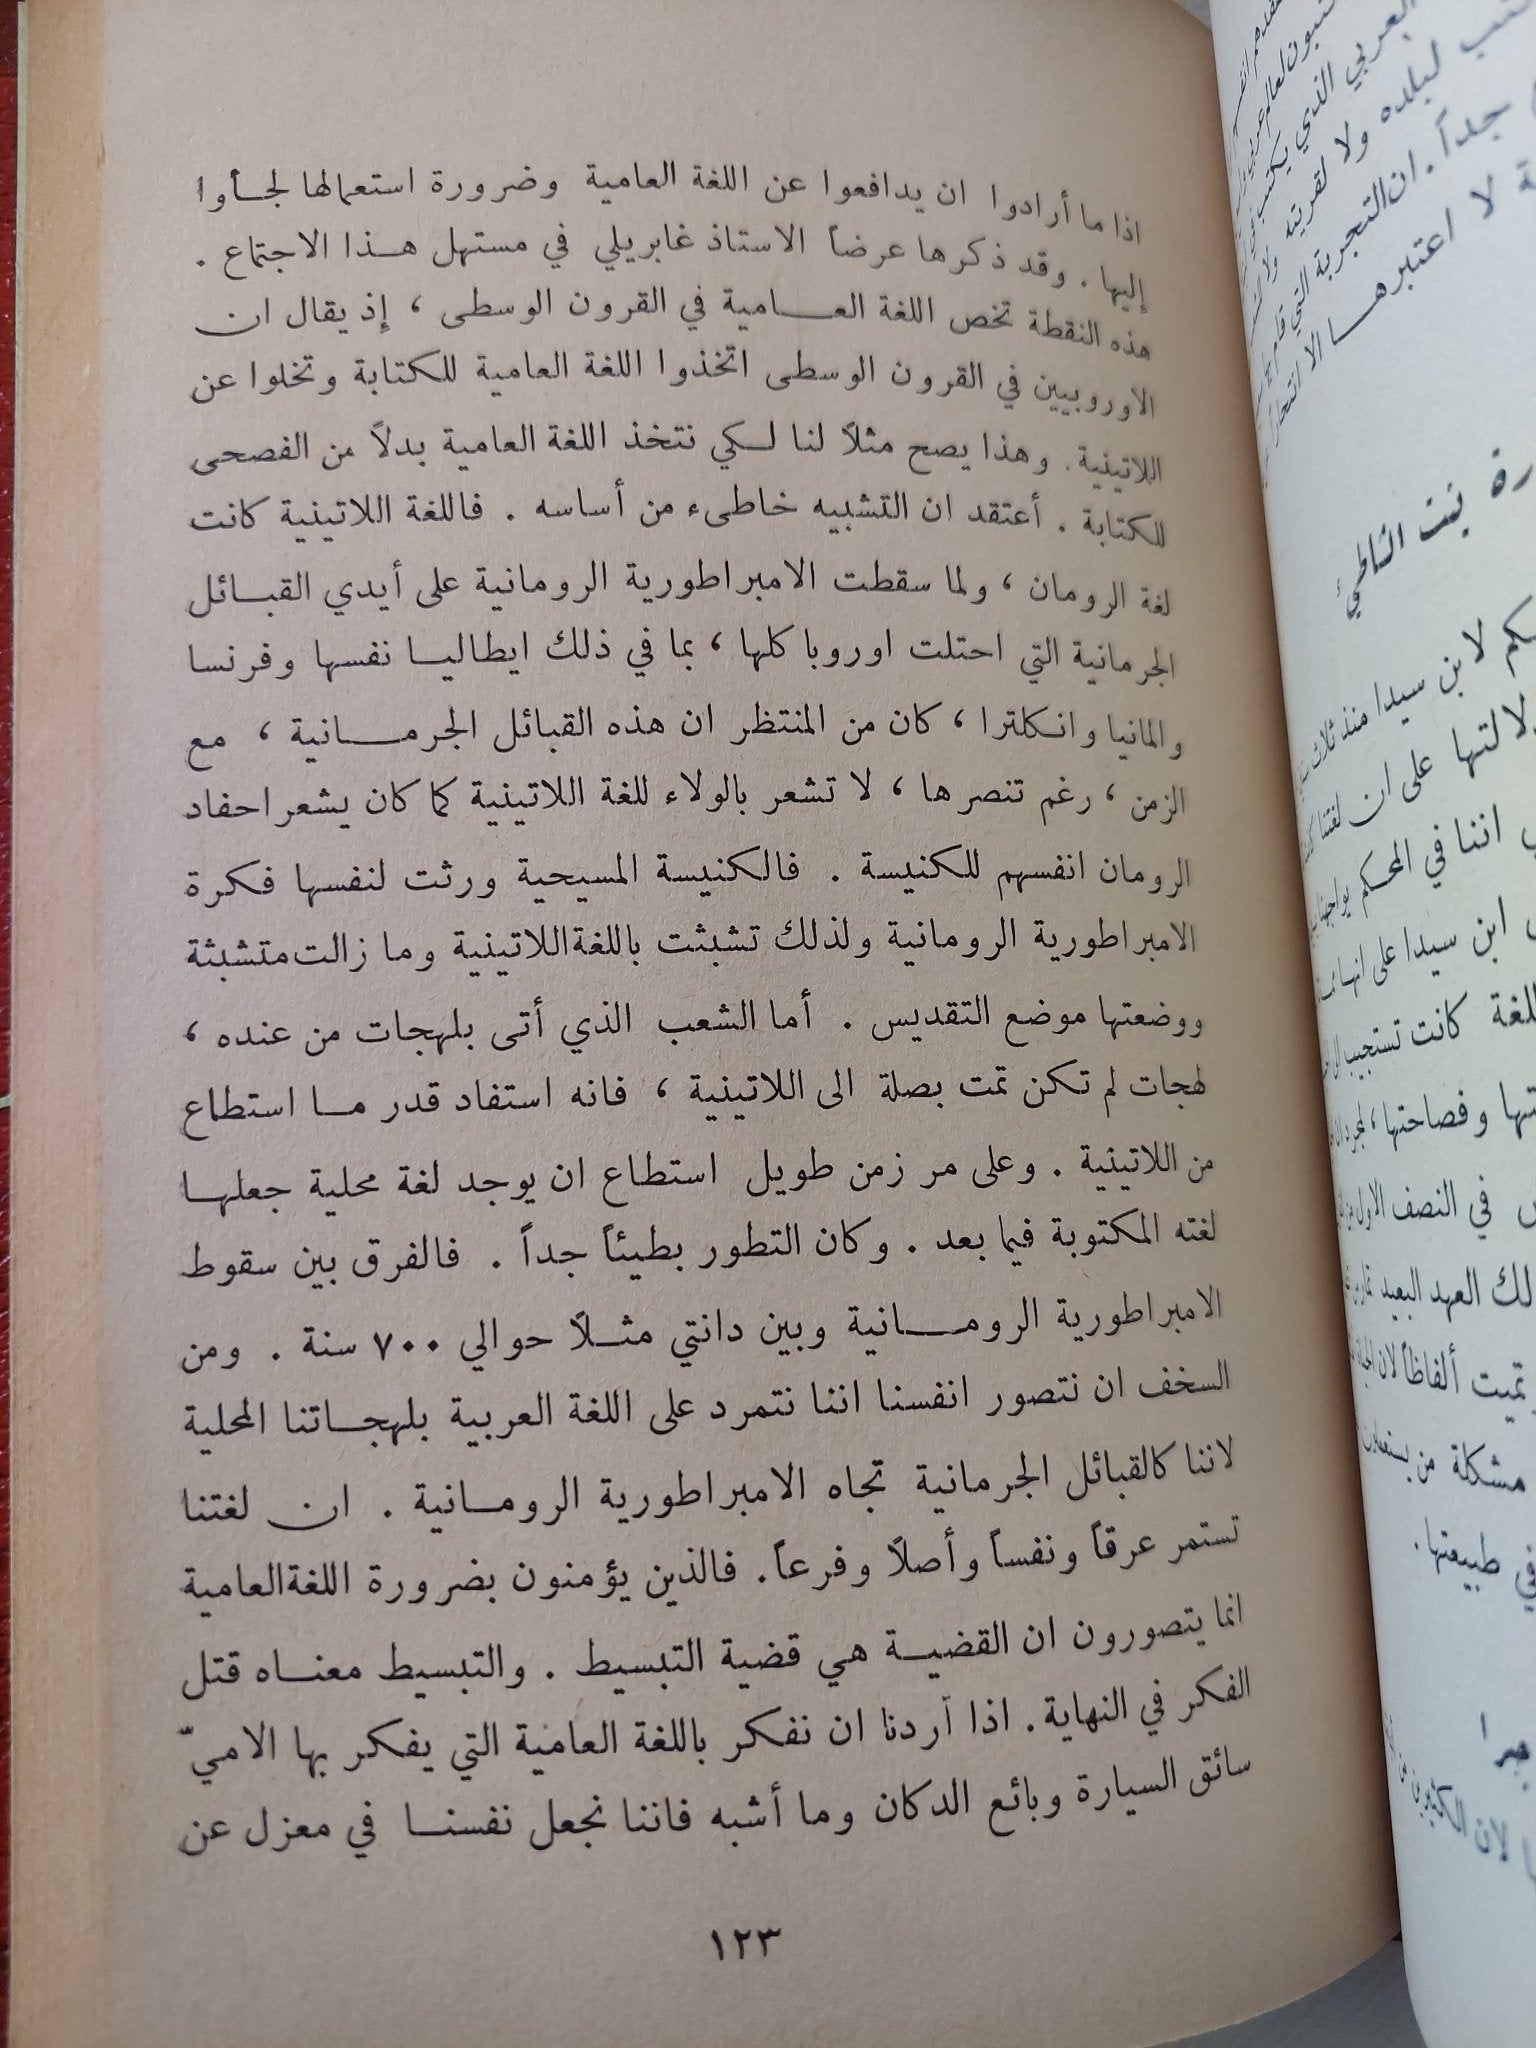 اذا ما أرادوا ان يدافعوا عن اللغة العامية وضرورة استعمالها لجأوا
إليها . وقد ذكرها عرضاً الاستاذ غابريلي في مستهل هذا الاجتماع .
هذه النقطة تخص اللغة العامية في القرون الوسطى ، إذ يقال ان
الاوروبيين في القرون الوسطى اتخذوا اللغة العامية للكتابة وتخلوا عن
اللاتينية . وهذا يصح مثلاً لنا لكي نتخذ اللغة العامية بدلاً من الفصحى
للكتابة . أعتقد ان التشبيه خاطىء من أساسه . فاللغة اللاتينية كانت
لغة الرومان ، ولما سقطت الامبراطورية الرومانية على أيدي القبائل
الجرمانية التي احتلت اوروبا كلها ، بما في ذلك ايطاليا نفسها وفرنسا
والمانيا وانكلترا ، كان من المنتظر ان هذه القبائل الجرمانية ، مع
الزمن ، رغم تنصرها ، لا تشعر بالولاء للغة اللاتينية كما كان يشعر احفاد
الرومان انفسهم للكنيسة . فالكنيسة المسيحية ورثت لنفسها فكرة
الامبراطورية الرومانية ولذلك تشبثت باللغة اللاتينية وما زالت متشبثة
ووضعتها موضع التقديس . أما الشعب الذي أتى بلهجات من عنده ،
لهجات لم تكن تمت بصلة الى اللاتينية ، فانه استفاد قدر ما استطاع
من اللاتينية . وعلى مر زمن طويل استطاع ان يوجد لغة محلية جعلها
لغته المكتوبة فيما بعد . وكان التطور بطيئاً جداً . فالفرق بين سقوط
الامبراطورية الرومانية وبين دانتي مثلاً حوالي ٧٠٠ سنة . ومن
السخف ان نتصور انفسنا اننا نتمرد على اللغة العربية بلهجاتنا المحلية
لاننا كالقبائل الجرمانية تجاه الامبراطورية الرومانية . ان لغتنا
تستمر عرقاً ونفساً وأصلاً وفرعاً . فالذين يؤمنون بضرورة اللغة العامية
انما يتصورون ان القضية هي قضية التبسيط . والتبسيط معناه قتل
الفكر في النهاية . اذا أردنا ان نفكر باللغة العامية التي يفكر بها الاميّ
سائق السيارة وبائع الدكان وما أشبه فاننا نجعل نفسنا في معزل عن
١٢٣
العربي الذي يكتب
لبلده ولا لقريته
جداً . ان التجربة التي قام
لا اعتبرها الا
بنت الشاطئ
لابن سيدا منذ ثلاث
على ان لغتنا
اننا في المحكم
ابن سيدا على انها
كانت تستجيب
وفصاحتها ،
في النصف الاول من
العهد البعيد
تميت ألفاظاً لان
مشكلة من
في طبيعتها .